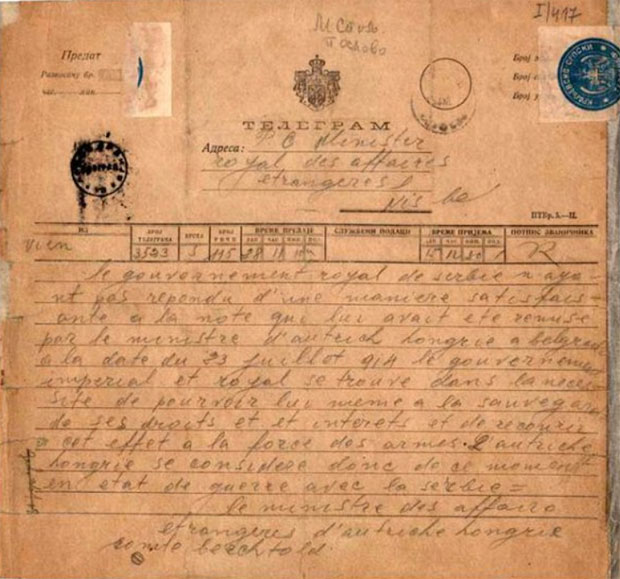 I/417
М Св осл
Предат
Број
ТЕЛЕГРАМ
Адреса: P C Minister
royal des affaires
etrangeres
Nis be
ПТБр. 5.—II.
ИЗ БРОЈ ТЕЛЕГРАМА ВРСТА БРОЈ РЕЧИ ВРЕМЕ ПРЕДАЈЕ СЛУЖБЕНИ ПОДАЦИ ВРЕМЕ ПРИЈЕМА ПОТПИС ЗВАНИЧНИКА
vien 3523 5 115 28 R
le gouvernement royal de serbie n aya=
nt pas rependu d'une maniere satisfais=
ante a la note qui lui avait ete remise
par le ministre d'autrich hongrie a belgrade
a la date du 23 juillot 914 le gouvernement
imperial et royal se trouve dans la neces
site de pourvoir lui meme a la sauvegard
de ses droits et et interets et de recourir
a cot effet a la force des armes. L autriche
hongrie se considere donc de ce moment
en etat de guerre avec la serbie =
le ministre des affaire
etrangeres d'autriche hongrie
comte berchtold